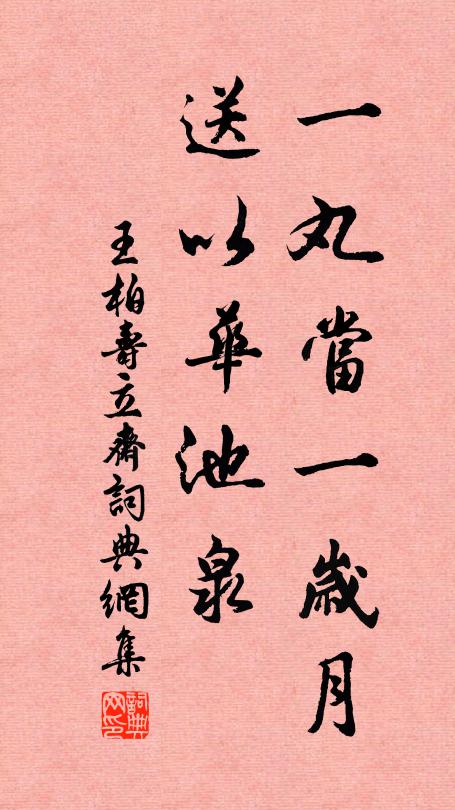 一丸當一歲月
送以華池泉
王柏壽立齋詞典網集
詞典网印